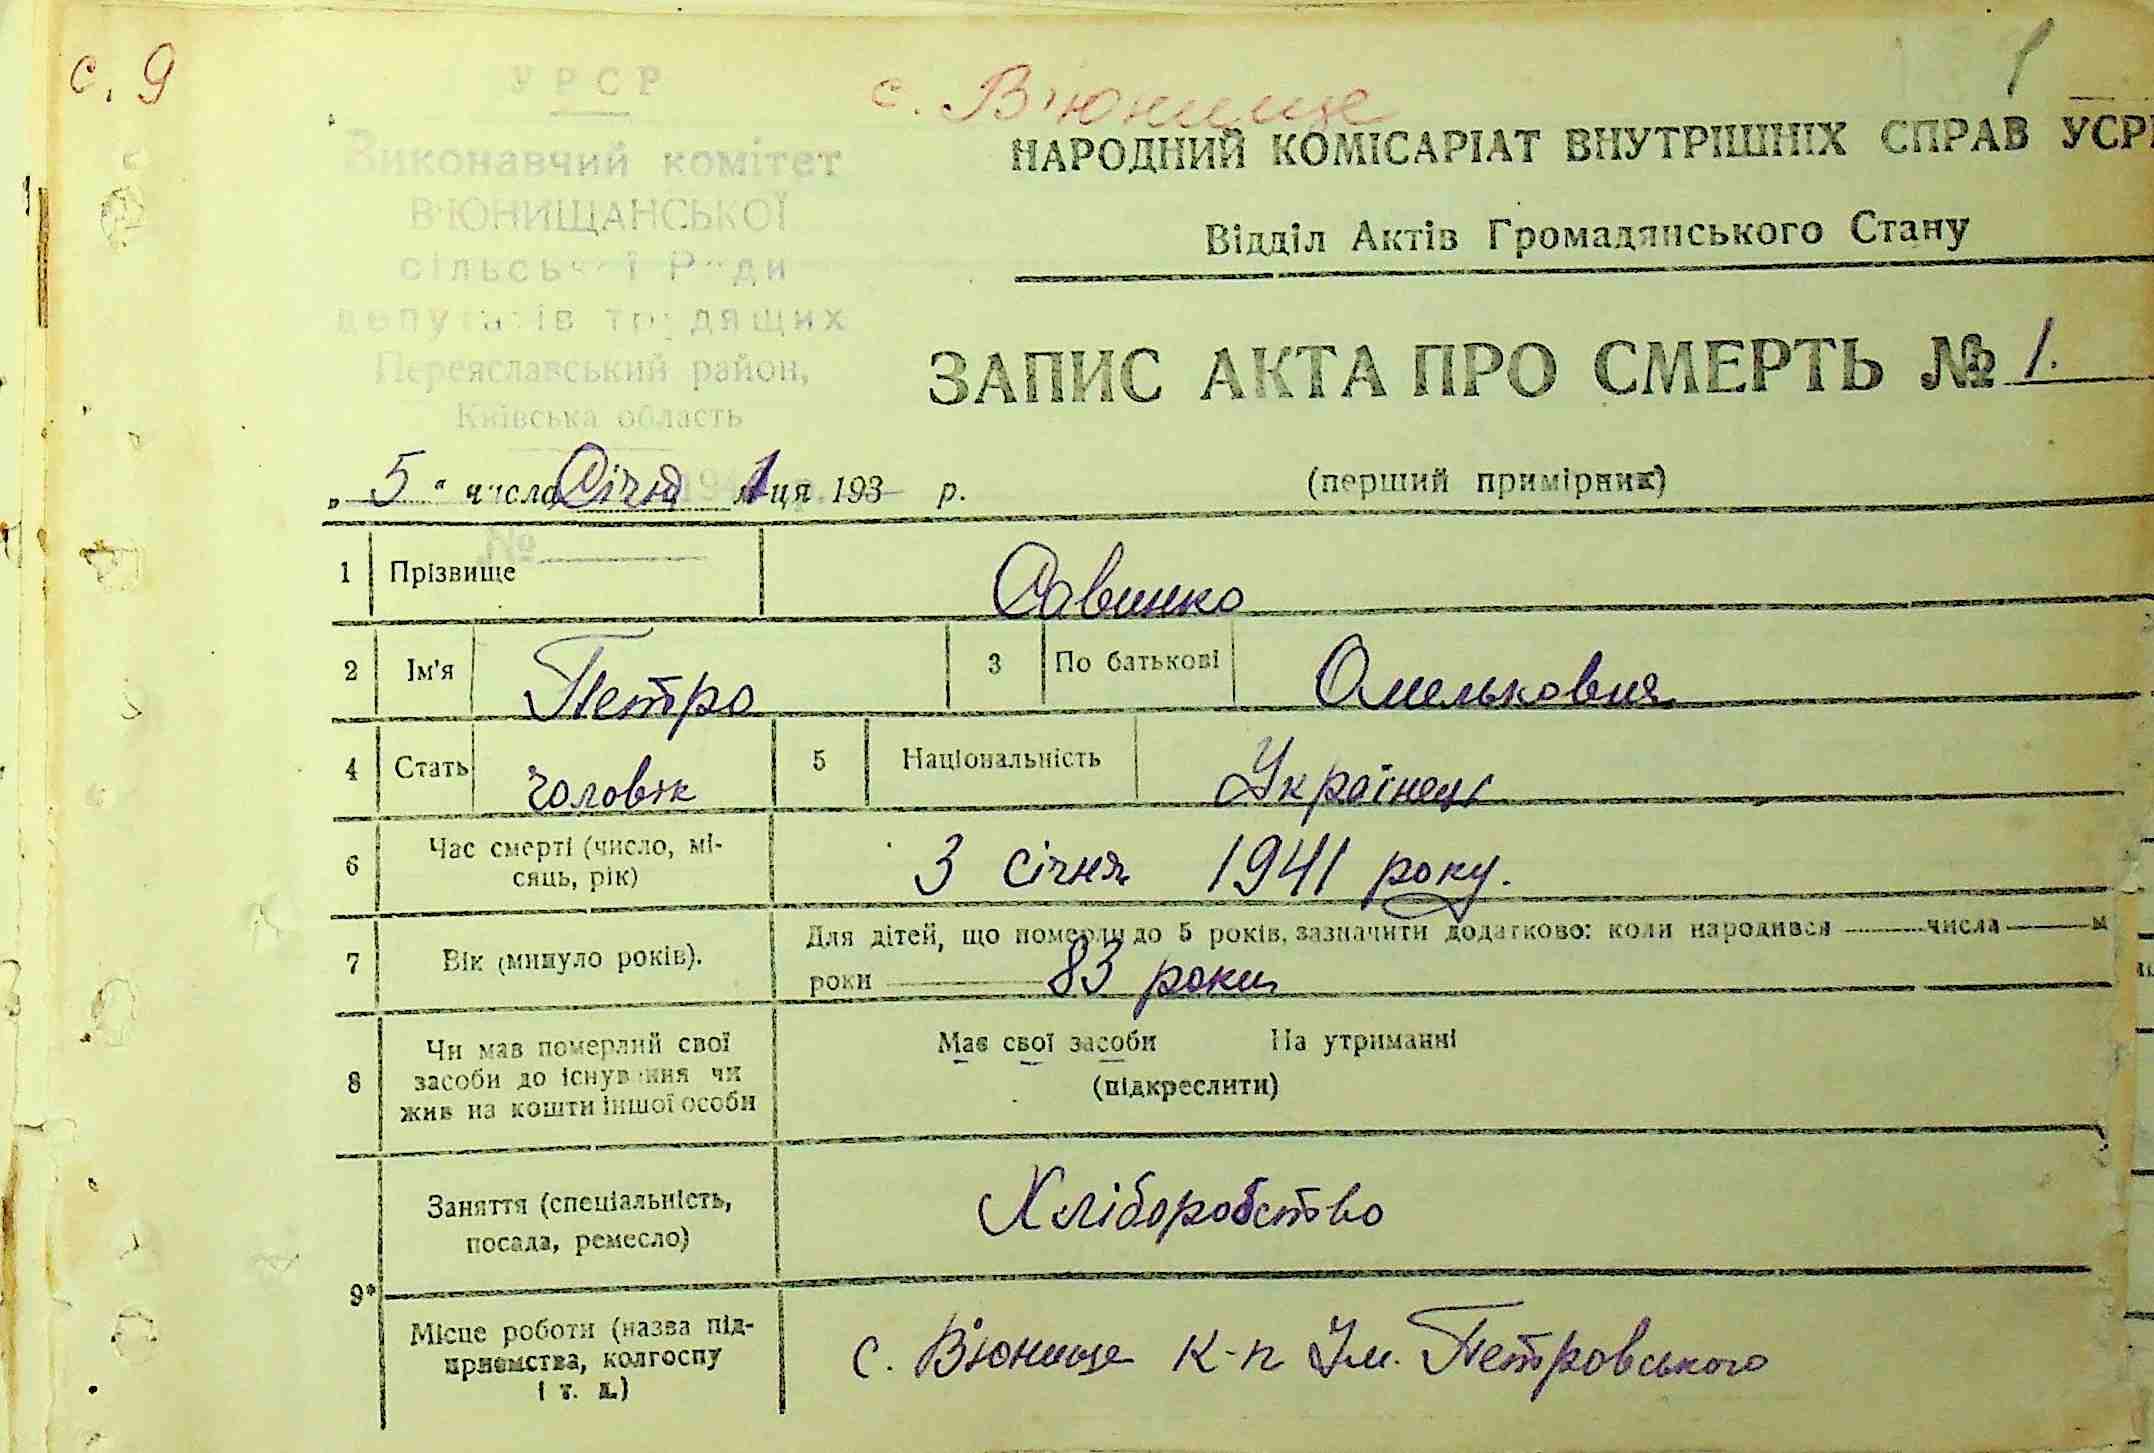 с. 9
с. В'юнище
1
УРСР
Виконавчий комітет
В'ЮНИЩАНСЬКОЇ
сільської Ради
депутатів трудящих
Переяславський район,
Київська область
№
НАРОДНИЙ КОМІСАРІАТ ВНУТРІШНІХ СПРАВ УСРР
Відділ Актів Громадянського Стану
ЗАПИС АКТА ПРО СМЕРТЬ № 1.
(перший примірник)
„ 5 “ числа Січня м-ця 193 р.
1 Прізвище Савинко
2 Ім'я Петро 3 По батькові Омелькович
4 Стать чоловік 5 Національність Українець
6 Час смерті (число, мі-
сяць, рік) 3 січня 1941 року.
7 Вік (минуло років). Для дітей, що померли до 5 років, зазначити додатково: коли народився числа м
роки 83 роки
8 Чи мав померлий свої
засоби до існування чи
жив на кошти іншої особи
Має свої засоби На утриманні
(підкреслити)
9*
Заняття (спеціальність,
посада, ремесло) Хліборобство
Місце роботи (назва під-
приємства, колгоспу
і т. д.) с. В'юнище к-п Ім. Петровського